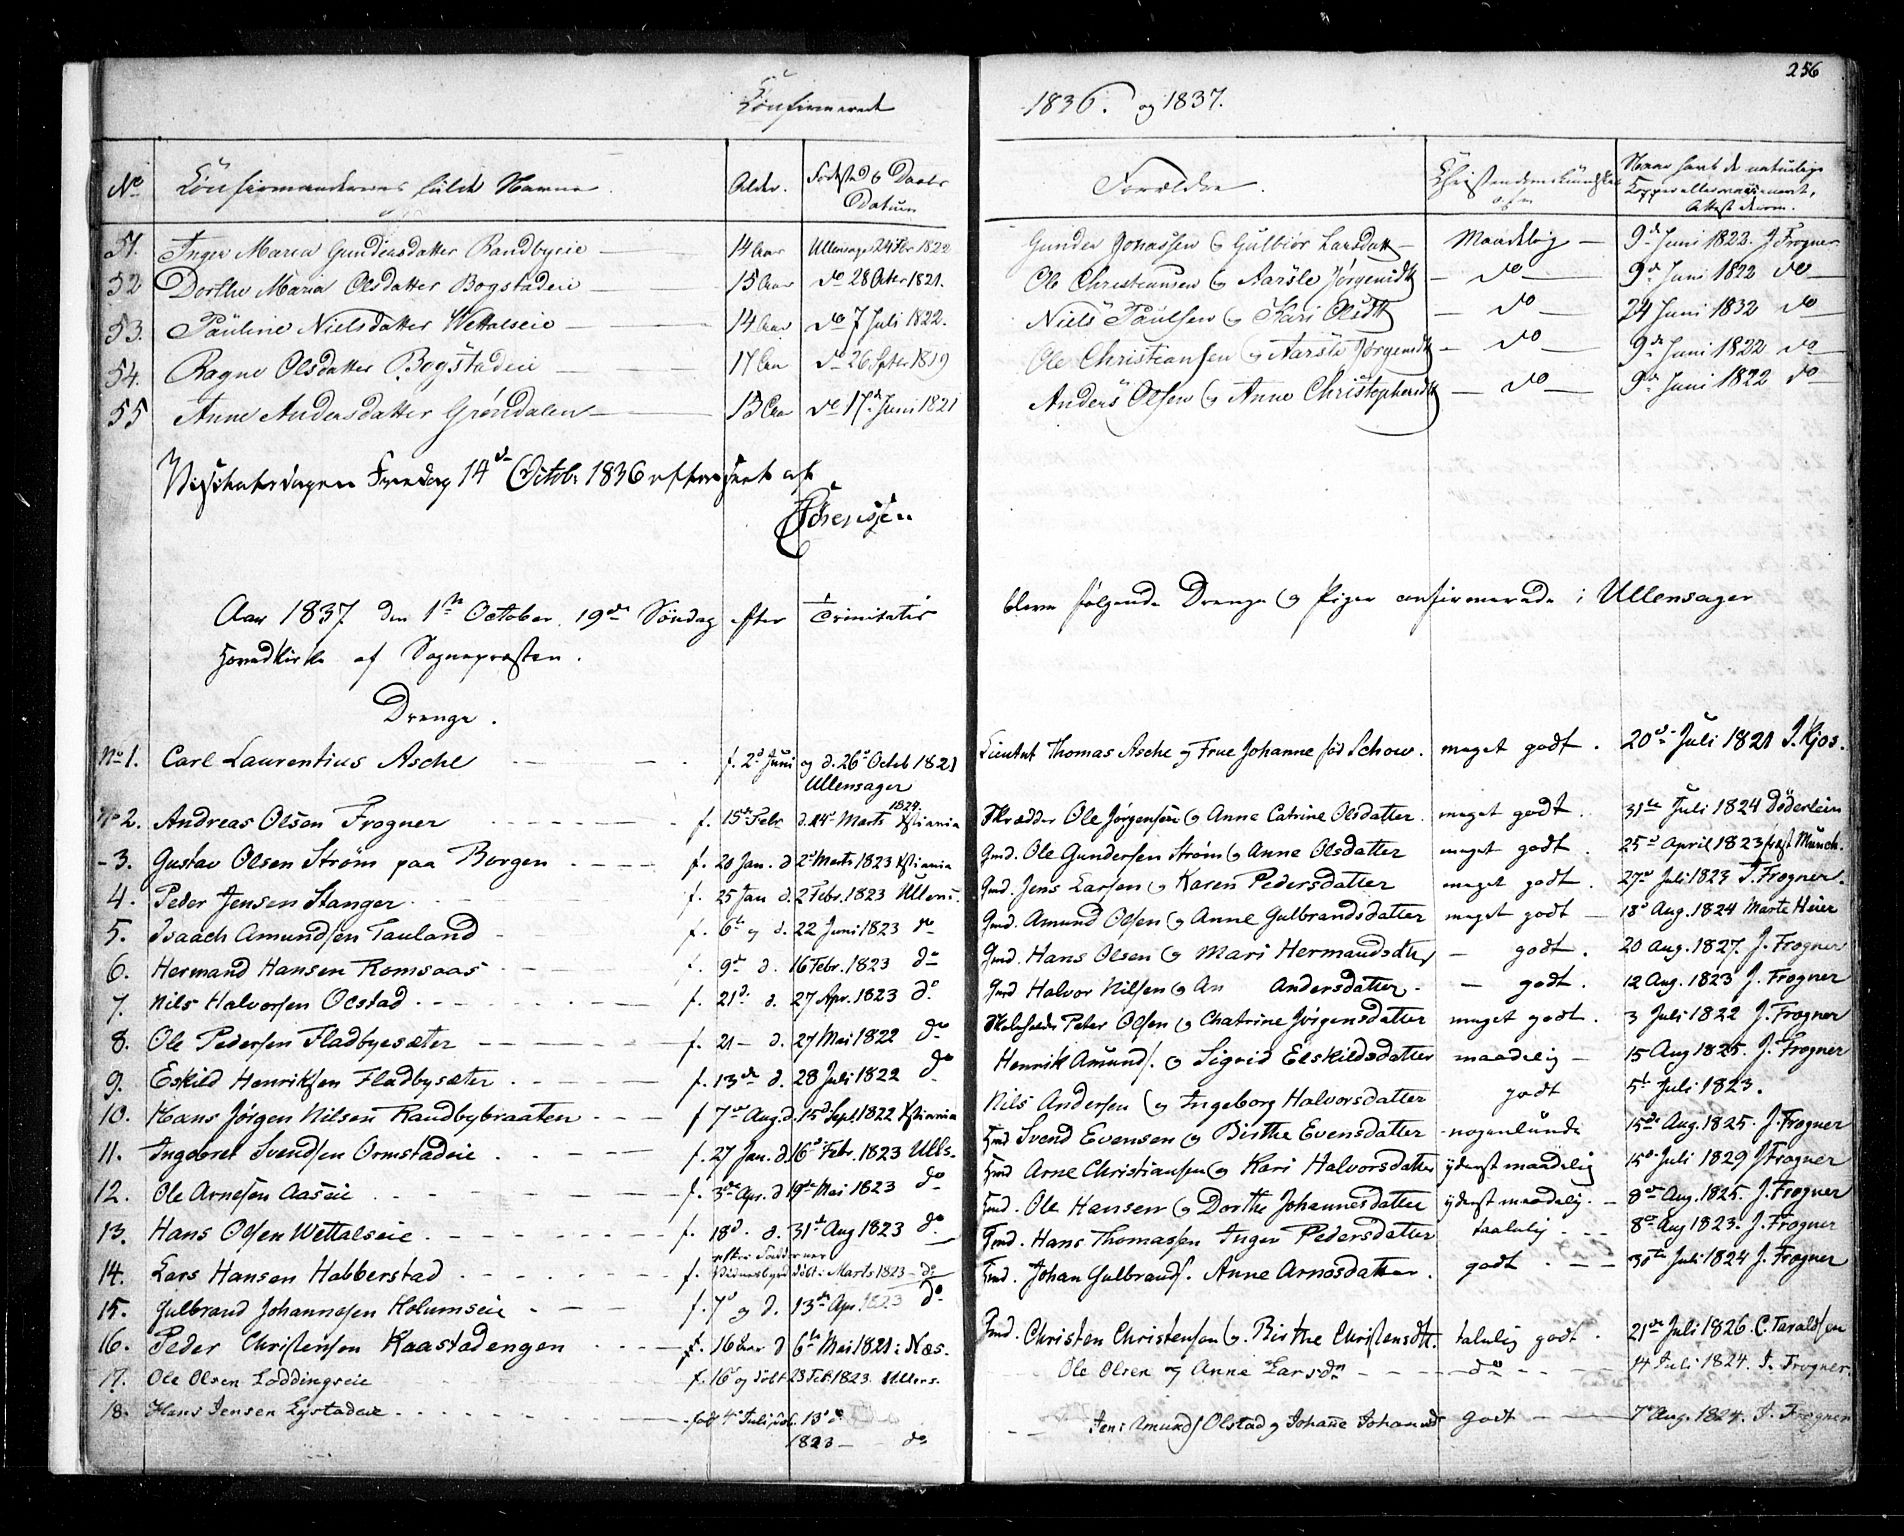 256
Confirmerede 1836. og 1837.
No Confirmandernes fulde Navne. Alder. Fødested & Daabs Datum Forældre. Christendomskundskab Naar havt de naturlige Kopper eller vaccineret, Attest derom.
51. Inger Maria Gundersdatter Randbyeie 14 Aar Ullensager 24 Febr 1822 Gunder Johassen & Gulbiør Larsdatt Maadelig 9de Juni 1822. J. Frogner
52 Dorthe Maria Olsdatter Bogstadeie 15 Aar do 28 Octbr 1821. Ole Christiansen & Aarsle Jørgensdtt do 9de Juni 1822 do
53. Pauline Nielsdatter Wettalseie 14 Aar do 7 Juli 1822. Niels Paulsen & Kari Olsdtt do 24 Juni 1832 do
54. Ragne Olsdatter Bogstadeie 17 Aar do 26 Septbr 1819 Ole Christiansen & Aarsle Jørgensdtt do 9de Juni 1822 do
55 Anne Andersdatter Grøndalen 15 Aar do 17de Juni 1821 Anders Olsen & Anne Christophersdtt do 9de Juni 1822 do
Visitatsdagen Fredag 14de Octobr 1836 efterseet af
Sørenssen
Aar 1837 den 1ste October 19de Søndag efter Trinitatis bleve følgende Drenge & Piger confirmerede i Ullensager
Hovedkirke af Sognepræsten.
Drenge.
No 1. Carl Laurentius Asche f. 2d Juni og d. 26d Octob 1821 Lieutnt Thomas Asche og Frue Johanne fød Schow. meget godt. 20de Juli 1821 J. Kjos.
Ullensager
No 2. Andreas Olsen Frogner f. 15de Febr d. 14d Marts 1824. Xstiania Skrædder Ole Jørgensen & Anne Catrine Olsdatter. meget godt. 31te Juli 1824 Döderlein
- 3. Gustav Olsen Strøm paa Borgen f. 20 Jan. d 2d Marts 1823 Xstiania Gmd. Ole Gundersen Strøm & Anne Olsdatter meget godt. 25d April 1823 prof. Munch.
4. Peder Jensen Stanger f. 25 Jan d. 2 Febr. 1823 Ullens. Gmd. Jens Larsen & Karen Pedersdatter meget godt. 27d Juli 1823 J. Frogner.
5. Isaach Amundsen Tauland f. 6te og d. 22 Juni 1823 do Gmd. Amund Olsen & Anne Gulbrandsdatter meget godt 18d Aug. 1824 Marte Heier
6. Hermand Hansen Romsaas f. 9de d. 16 Febr. 1823 do Gmd. Hans Olsen & Mari Hermandsdtr godt. 20 Aug. 1827. J. Frogner
7. Nils Halvorsen Olstad f. 21d. d. 27 Apr. 1823 do Gmd Halvor Nilsen & An Andersdatter. godt. 12 Aug. 1823 J. Frogner
8. Ole Pedersen Fladbyesæter f. 21 - d. 27 Mai 1822 do Skoleholder Peter Olsen & Chatrine Jørgensdatter meget godt. 3 Juli 1822 J. Frogner
9. Eskild Henriksen Fladbysæter f. 13de d. 28 Juli 1822 do Henrik Amunds. & Sigrid Elskildsdatter maadelig 15 Aug 1825. J. Frogner
10. Hans Jørgen Nilsen Randbybraaten f 7de Aug. d. 15d Sept. 1822 Xstiania Nils Andersen & Ingeborg Halvorsdatter godt 5t Juli 1823.
11. Ingebret Svendsen Ormstadeie f. 27 Jan. d. 16d Febr. 1823 Ulls. Gmd Svend Evensen & Birthe Evensdatter nogenlunde 15de Aug. 1825. J. Frogner
12. Ole Arnesen Aaseie f. 3de Apr. d 19de Mai 1823 do Gmd Arne Christiansen & Kari Halvorsdatter yderst maadelig 15d Juli 1829 J Frogner
13. Hans Olsen Wettalseie f. 18d. d. 31te Aug 1823 do Gmd. Ole Hansen & Dorthe Johannesdatter yderst maadelig. 8de Aug. 1825. J. Frogner
14. Lars Hansen Habberstad f. døbt i Marts 1823 do Gmd. Hans Thomassen Inger Pedersdatter taalelig 8de Aug 1823. J. Frogner
15. Gulbrand Johannesen Holumseie f. 7d og d. 13de Apr 1823 do Gmd. Johan Gulbrands. Anne Arnesdatter. godt. 30te Juli 1824 J. Frogner
16. Peder Christensen Kaastadengen f. 16 Aar d 6te Mai 1821 i Næs. Gmd. Christen Christensen & Birthe Christensdtt. talelig godt. 21de Juli 1826. C. Taraldsen
17. Ole Olsen Loddingseie f. 16d og døbt 23 Feb. 1823. Ullens. Ole Olsen og Anne Larsdr do 14 Juli 1824. J. Frogner.
18. Hans Jensen Lystadeie født 4d Juli døb. 13d Jens Amunds Olstad og Johane Johansdt Godt 7d Aug. 1824. J. Frogner
1823 do